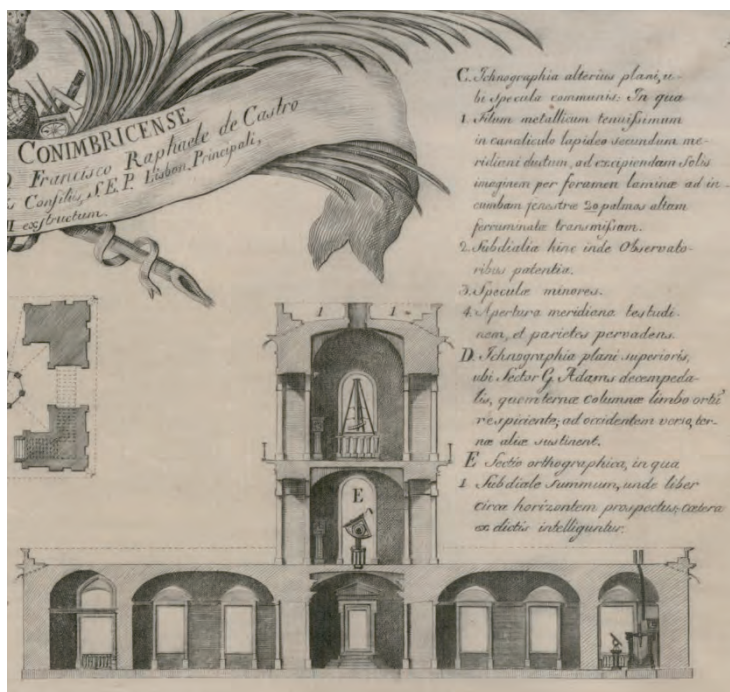 CONIMBRICENSE
Francisco Raphaele de Castro
Consiliis, S.E.P. Lisbon. Principali,
exstructum.
C. Ichnographia alterius plani, u-
bi specula communis: In qua
1. Filum metallicum tenuissimum
in canaliculo lapideo secundum me-
ridiani ductum, ad excipiendam Solis
imaginem per foramen laminæ ad in-
cumbam fenestræ 20 palmos altam
ferruminatæ transmissam.
2. Subdialia hinc inde Observato-
ribus patentia.
3. Speculæ minores.
4. Apertura meridiana testudi-
nem, et parietes pervadens.
D. Ichnographia plani superioris,
ubi Sector G. Adams decempeda-
lis, quem ternæ columnæ limbo ortū
respiciente; ad occidentem verso, ter-
næ aliæ sustinent.
E Sectio orthographica, in qua
1 Subdiale summum, unde liber
circa horizontem prospectus; cætera
ex dictis intelliguntur.
1 1
E